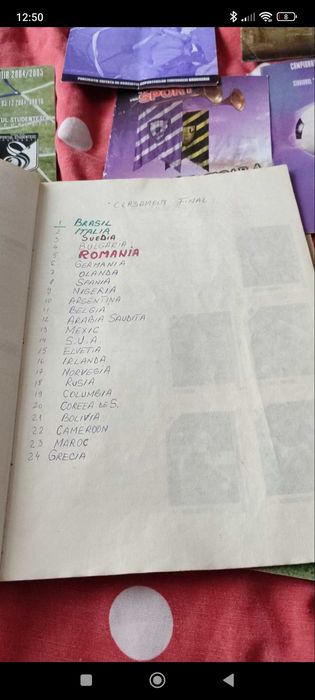 12:50
8
TIA 2004/2005
03.12.2004, ORA 16
UL STUDENTESC
SPORT
CAMPIONA
CLASAMENT FINAL
1 BRASIL
2 ITALIA
3 SUEDIA
4 BULGARIA
5 ROMANIA
6 GERMANIA
7 OLANDA
8 SPANIA
9 NIGERIA
10 ARGENTINA
11 BELGIA
12 ARABIA SAUDITA
13 MEXIC
14 S.U.A.
15 ELVETIA
16 IRLANDA
17 NORVEGIA
18 RUSIA
19 COLUMBIA
20 COREEA DE S.
21 BOLIVIA
22 CAMEROON
23 MAROC
24 GRECIA